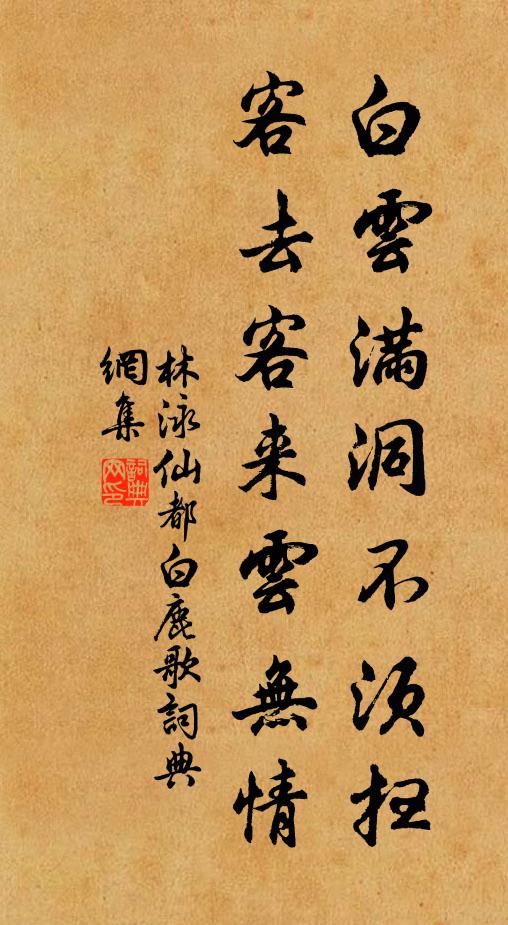 白雲滿洞不須扫
客去客来雲無情
林泳仙都白鹿歌詞典
網集
詞典
网印